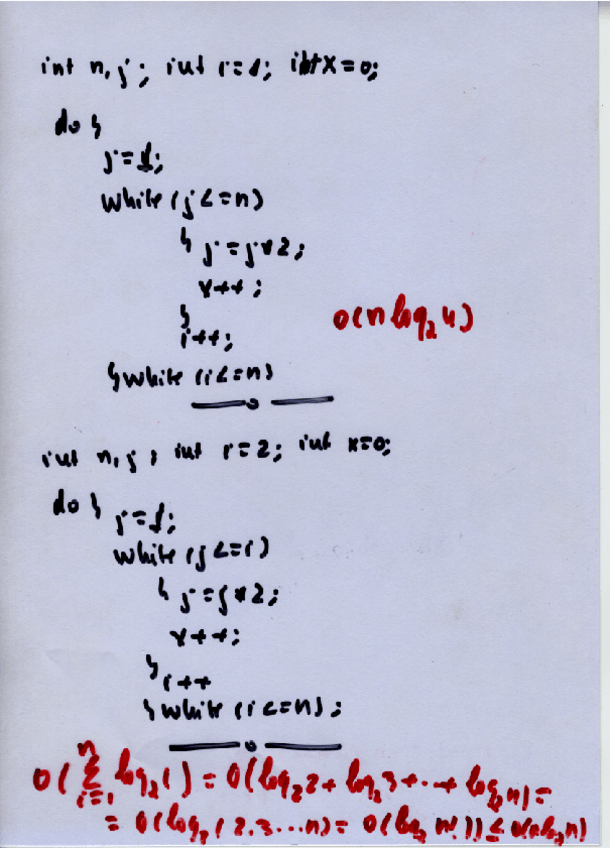 int n, j ; int i=1; int x=0;
do {
j=1;
while (j <= n)
{ j = j*2;
x++ ;
}
O(n log₂ n)
i++;
} while (i <= n)
int n, j ; int i=2; int x=0;
do {
j=1;
while (j <= i)
{ j = j*2;
x++;
}
i++
} while (i <= n) ;
O( ∑ⁿᵢ₌₁ log₂ i ) = O( log₂ 2 + log₂ 3 + ... + log₂ n) =
= O( log₂ ( 2.3 ... n) = O( log₂ n! )) ≤ O(n log₂ n)